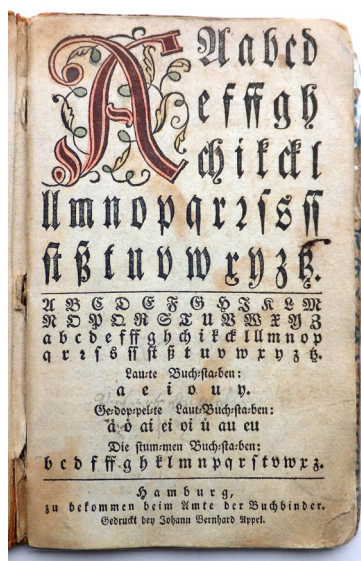 A A a b c d
e f ff g h
ch i k ck l
ll m n o p q r ꝛ ſ s ſſ
ſt ß t u v w x y z tz.
A B C D E F G H J K L M
N O P Q R S T U V W X Y Z
a b c d e f ff g h ch i k ck l ll m n o p
q r ꝛ ſ s ſſ ſt ß t u v w x y z tz.
Lau⸗te Buch⸗ſta⸗ben:
a e i o u y.
Ge⸗dop⸗pel⸗te Laut⸗Buch⸗ſta⸗ben:
ä ö ai ei oi ü au eu
Die ſtum⸗men Buch⸗ſta⸗ben:
b c d f ff g h k l m n p q r ſ t v w x z.
Hamburg,
zu bekommen beim Amte der Buchbinder.
Gedruckt bey Johann Bernhard Appel.